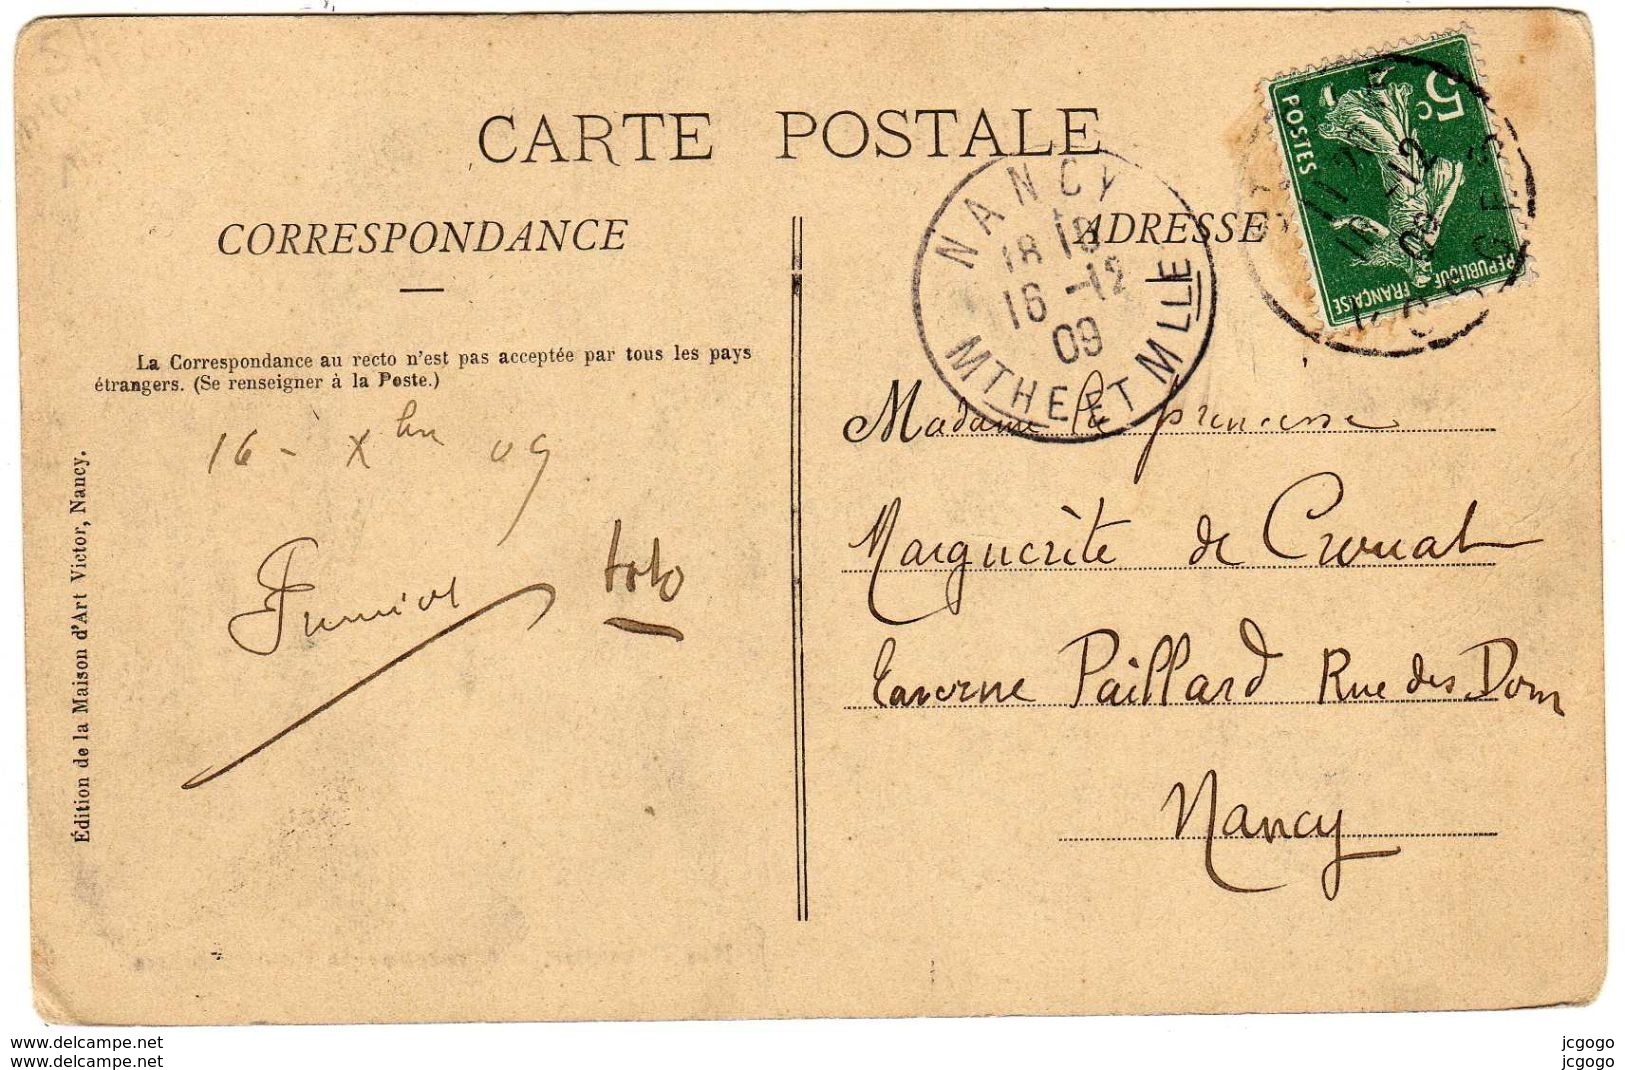 CARTE POSTALE
CORRESPONDANCE
ADRESSE
La Correspondance au recto n'est pas acceptée par tous les pays
étrangers. (Se renseigner à la Poste.)
16 - Xbre 09
toto
Édition de la Maison d'Art Victor, Nancy.
5c
POSTES
REPUBLIQUE FRANÇAISE
NANCY
18 10
16 -12
09
MTHE ET MLLE
16 -12
09
Madame la princesse
Marguerite de Crouat
taverne Paillard Rue des Dom
Nancy
www.delcampe.net
www.delcampe.net
jcgogo
jcgogo